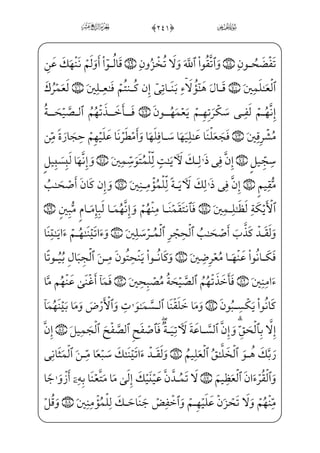 ﴿٢٤١﴾
تَفْضَحُونِ ۝٦٨ وَٱتَّقُوا۟ ٱللَّهَ وَلَا تُخْزُونِ ۝٦٩ قَالُوٓا۟ أَوَلَمْ نَنْهَكَ عَنِ
ٱلْعَٰلَمِينَ ۝٧٠ قَالَ هَٰٓؤُلَآءِ بَنَاتِىٓ إِن كُنتُمْ فَٰعِلِينَ ۝٧١ لَعَمْرُكَ
إِنَّهُمْ لَفِى سَكْرَتِهِمْ يَعْمَهُونَ ۝٧٢ فَأَخَذَتْهُمُ ٱلصَّيْحَةُ
مُشْرِقِينَ ۝٧٣ فَجَعَلْنَا عَٰلِيَهَا سَافِلَهَا وَأَمْطَرْنَا عَلَيْهِمْ حِجَارَةً مِّن
سِجِّيلٍ ۝٧٤ إِنَّ فِى ذَٰلِكَ لَءَايَٰتٍ لِّلْمُتَوَسِّمِينَ ۝٧٥ وَإِنَّهَا لَبِسَبِيلٍ
مُّقِيمٍ ۝٧٦ إِنَّ فِى ذَٰلِكَ لَءَايَةً لِّلْمُؤْمِنِينَ ۝٧٧ وَإِن كَانَ أَصْحَٰبُ
ٱلْأَيْكَةِ لَظَٰلِمِينَ ۝٧٨ فَٱنتَقَمْنَا مِنْهُمْ وَإِنَّهُمَا لَبِإِمَامٍ مُّبِينٍ ۝٧٩
وَلَقَدْ كَذَّبَ أَصْحَٰبُ ٱلْحِجْرِ ٱلْمُرْسَلِينَ ۝٨٠ وَءَاتَيْنَٰهُمْ ءَايَٰتِنَا
فَكَانُوا۟ عَنْهَا مُعْرِضِينَ ۝٨١ وَكَانُوا۟ يَنْحِتُونَ مِنَ ٱلْجِبَالِ بُيُوتًا
ءَامِنِينَ ۝٨٢ فَأَخَذَتْهُمُ ٱلصَّيْحَةُ مُصْبِحِينَ ۝٨٣ فَمَآ أَغْنَىٰ عَنْهُم مَّا
كَانُوا۟ يَكْسِبُونَ ۝٨٤ وَمَا خَلَقْنَا ٱلسَّمَٰوَٰتِ وَٱلْأَرْضَ وَمَا بَيْنَهُمَآ
إِلَّا بِٱلْحَقِّ ۗ وَإِنَّ ٱلسَّاعَةَ لَءَاتِيَةٌ ۖ فَٱصْفَحِ ٱلصَّفْحَ ٱلْجَمِيلَ ۝٨٥ إِنَّ
رَبَّكَ هُوَ ٱلْخَلَّٰقُ ٱلْعَلِيمُ ۝٨٦ وَلَقَدْ ءَاتَيْنَٰكَ سَبْعًا مِّنَ ٱلْمَثَانِى
وَٱلْقُرْءَانَ ٱلْعَظِيمَ ۝٨٧ لَا تَمُدَّنَّ عَيْنَيْكَ إِلَىٰ مَا مَتَّعْنَا بِهِۦٓ أَزْوَٰجًا
مِّنْهُمْ وَلَا تَحْزَنْ عَلَيْهِمْ وَٱخْفِضْ جَنَاحَكَ لِلْمُؤْمِنِينَ ۝٨٨ وَقُلْ